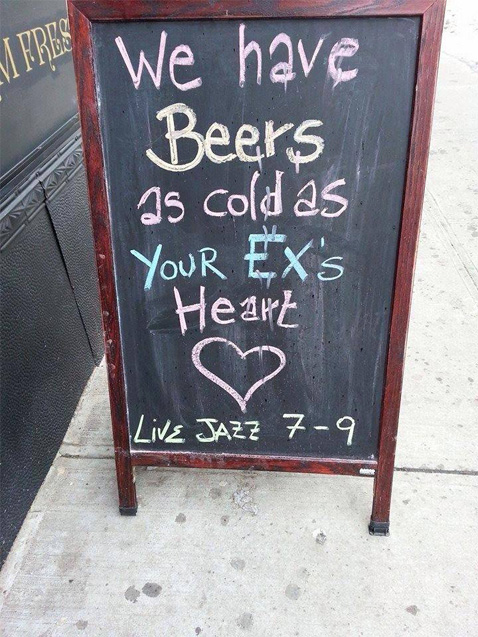 We have
Beers
as cold as
YOUR EX's
Heart
LIVE JAZZ 7-9